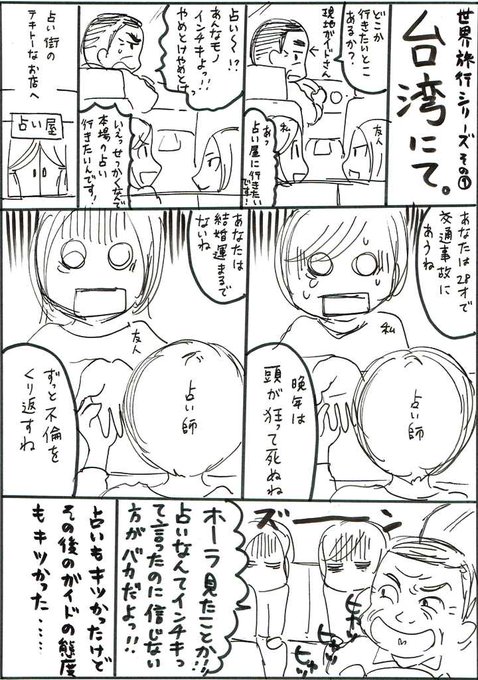 世界旅行シリーズその①
台湾にて。
どこか
行きたいとこ
あるか?
現地ガイドさん
友人
私
あっ
占い屋に行きたい
です!
占い〜!?
あんなモノ
インチキよっ!!
やめとけやめとけ
いえっせっかくなんで
本場の占い
行きたいんです!
占い街の
テキトーなお店へ
占い屋
あなたは28才で
交通事故に
あうね
私
占い師
晩年は
頭が狂って死ぬね
あなたは
結婚運まるで
ないね
友人
占い師
ずっと不倫を
くり返すね
ズーーン
ホーラ見たことか!!
占いなんてインチキっ
て言ったのに信じない
方がバカだよっ!!
ヒャッ
ヒャッ
占いもキツかったけど
その後のガイドの態度
もキツかった……